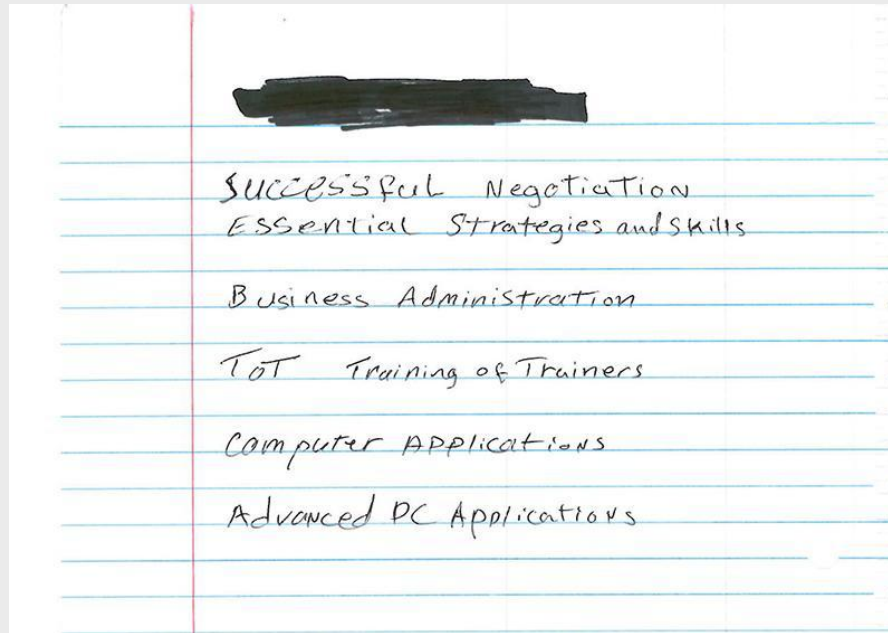 Successful Negotiation
Essential Strategies and Skills
Business Administration
ToT Training of Trainers
Computer Applications
Advanced PC Applications